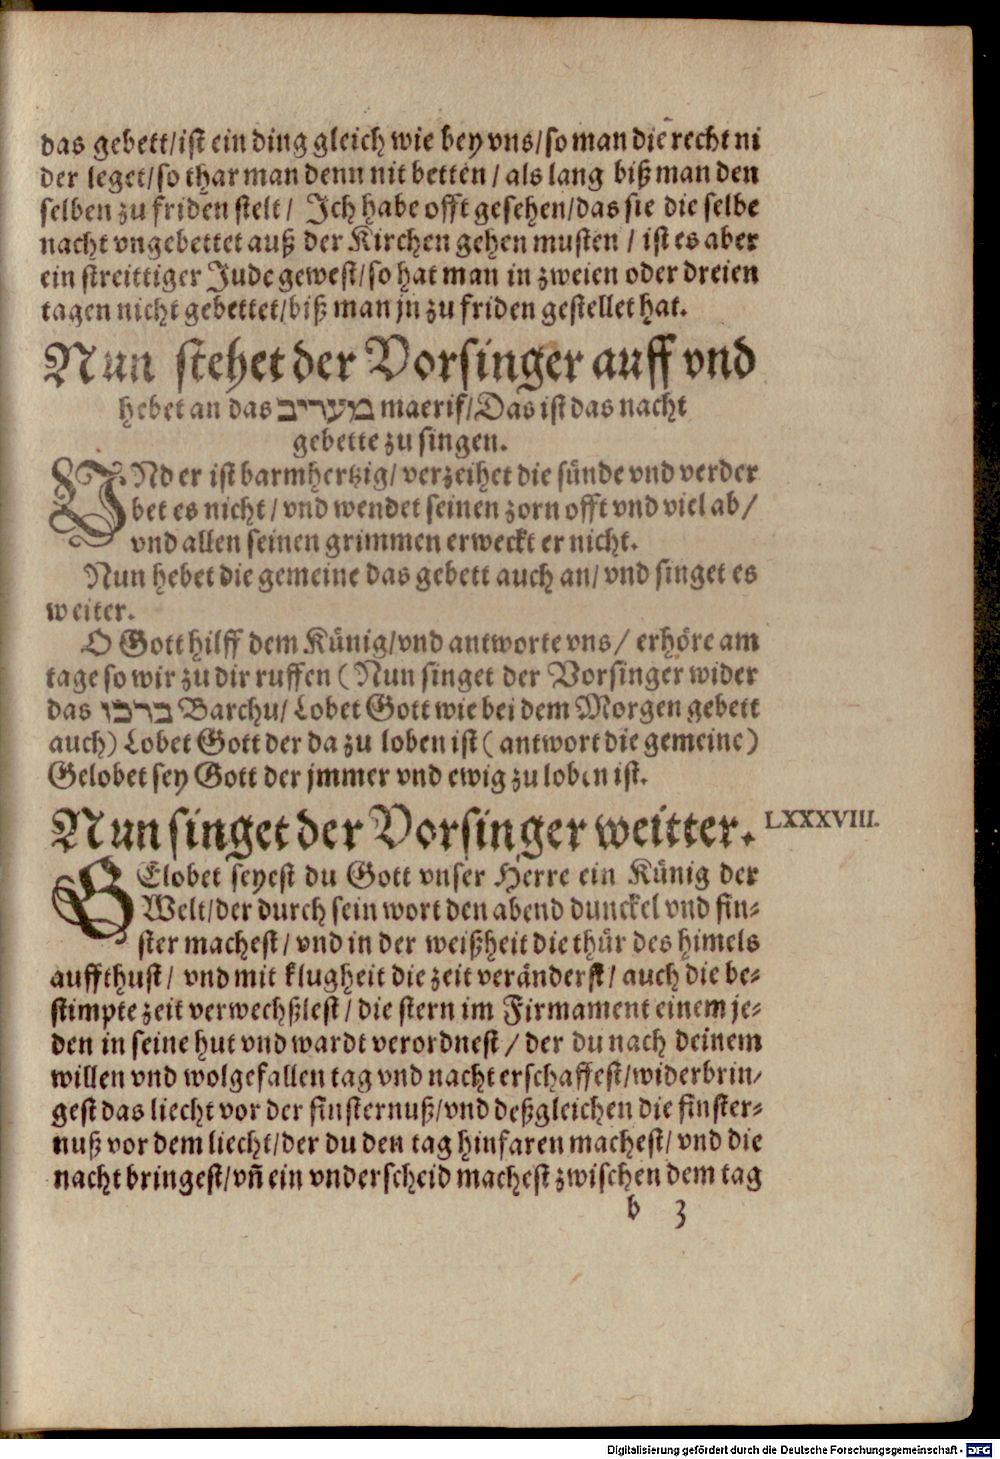 das gebett/ist ein ding gleich wie bey vns/so man die recht ni
der leget/so thar man denn nit betten/als lang biß man den
selben zu friden stelt/ Ich habe offt gesehen/das sie die selbe
nacht vngebettet auß der Kirchen gehen musten/ist es aber
ein streittiger Jude gewest/so hat man in zweien oder dreien
tagen nicht gebettet/biß man jn zu friden gestellet hat.
Nun stehet der Vorsinger auff vnd
hebet an das מעריב maerif/Das ist das nacht
gebette zu singen.
VNd er ist barmhertzig/verzeihet die sünde vnd verder
bet es nicht/vnd wendet seinen zorn offt vnd viel ab/
vnd allen seinen grimmen erweckt er nicht.
Nun hebet die gemeine das gebett auch an/vnd singet es
weiter.
O Gott hilff dem Künig/vnd antworte vns/ erhöre am
tage so wir zu dir ruffen (Nun singet der Vorsinger wider
das ברכו Barchu/Lobet Gott wie bei dem Morgen gebett
auch) Lobet Gott der da zu loben ist (antwort die gemeine)
Gelobet sey Gott der jmmer vnd ewig zu loben ist.
Nun singet der Vorsinger weitter. LXXXVIII.
GElobet seyest du Gott vnser Herre ein Künig der
Welt/der durch sein wort den abend dunckel vnd fin⸗
ster machest/vnd in der weißheit die thür des himels
auffthust/ vnd mit klugheit die zeit veränderst/auch die be⸗
stimpte zeit verwechßlest/die stern im Firmament einem je⸗
den in seine hut vnd wardt verordnest/der du nach deinem
willen vnd wolgefallen tag vnd nacht erschaffest/widerbrin⸗
gest das liecht vor der finsternuß/vnd deßgleichen die finster⸗
nuß vor dem liecht/der du den tag hinfaren machest/vnd die
nacht bringest/vñ ein vnderscheid machest zwischen dem tag
b 3
Digitalisierung gefördert durch die Deutsche Forschungsgemeinschaft - DFG